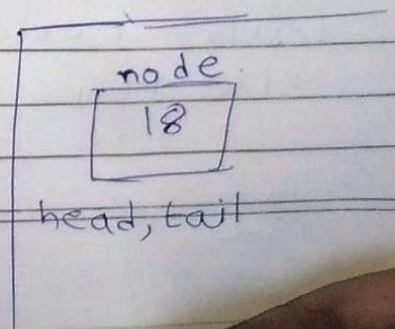 node
18
head, tail